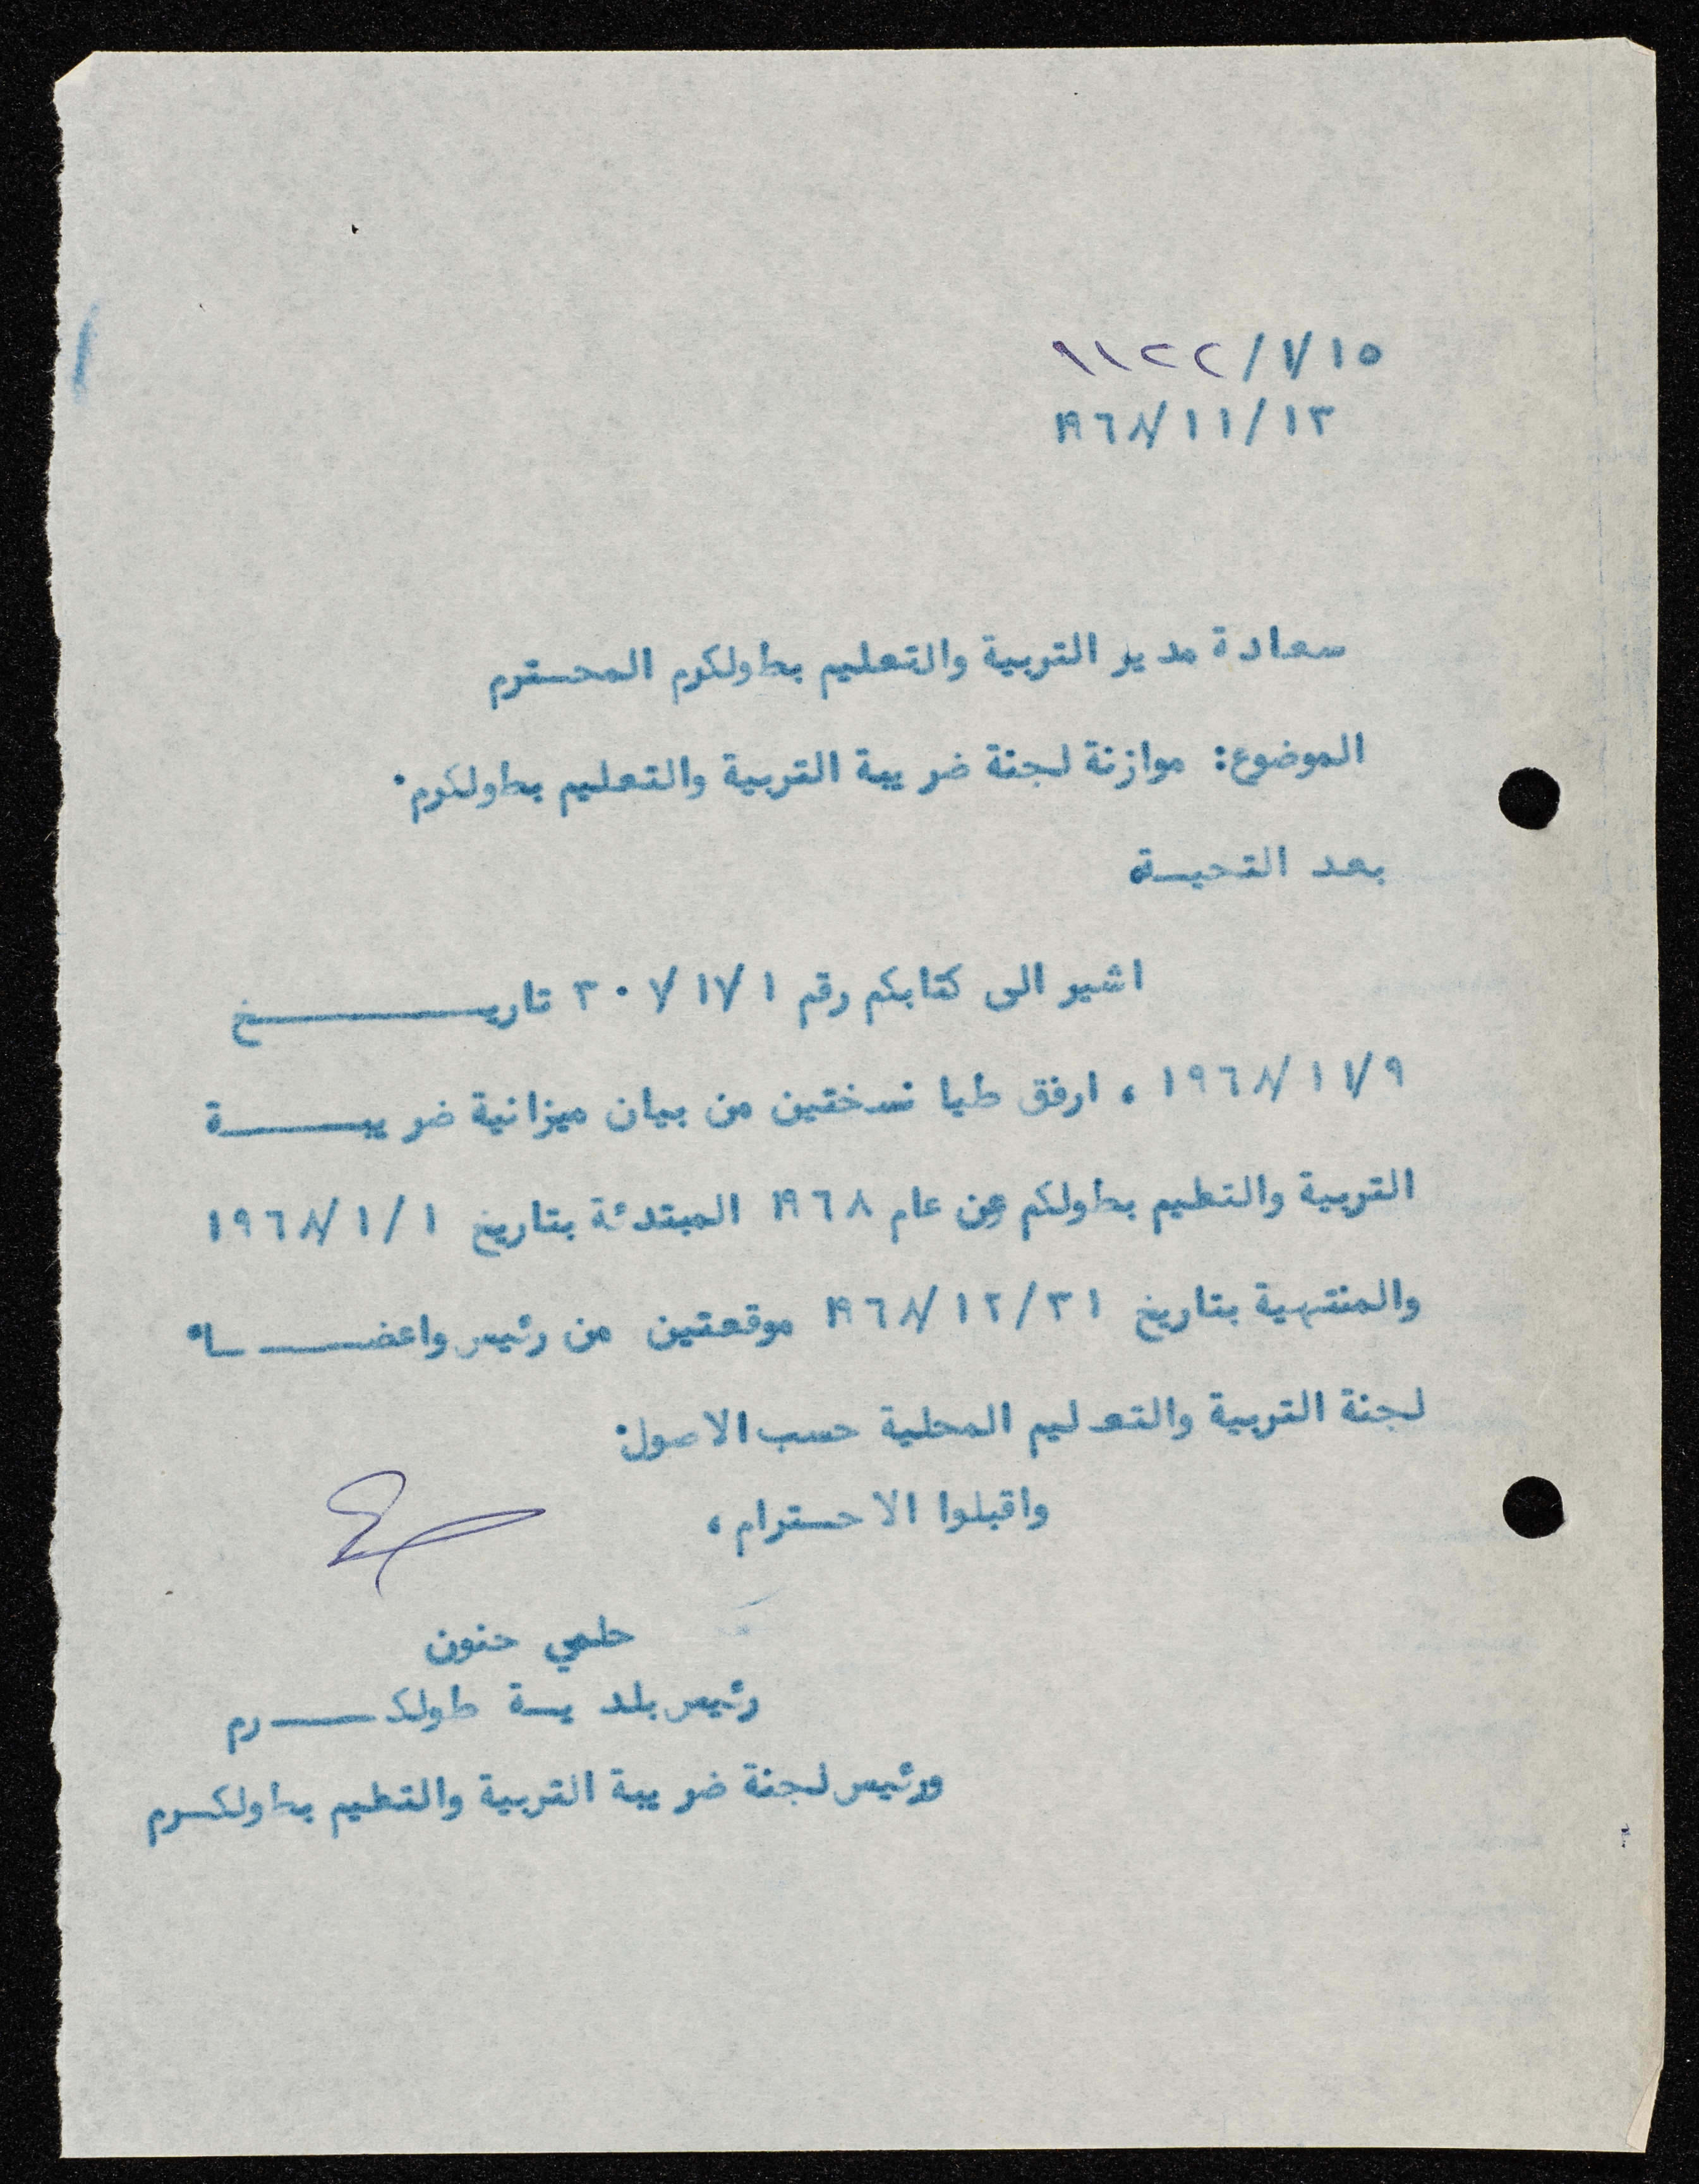 ١١٢٢/١/١٥
١٩٦٨/١١/١٣
سعادة مدير التربية والتعليم بطولكرم المحــترم
الموضوع: موازنة لجنة ضريبة التربية والتعليم بطولكرم.
بعد التحيــة
اشير الى كتابكم رقم ٣٠٧/١٧/١ تاريــــــــخ
١٩٦٨/١١/٩ ، ارفق طيا نسختين من بيان ميزانية ضريبـــــــة
التربية والتعليم بطولكم عن عام ١٩٦٨ المبتدئة بتاريخ ١٩٦٨/١/١
والمنتهية بتاريخ ١٩٦٨/١٢/٣١ موقعتين من رئيس واعضـــــاء
لجنة التربية والتعليم المحلية حسب الاصول.
واقبلوا الاحــترام ،
حلمي حنون
رئيس بلديــة طولكـــــرم
ورئيس لجنة ضريبة التربية والتعليم بطولكــرم